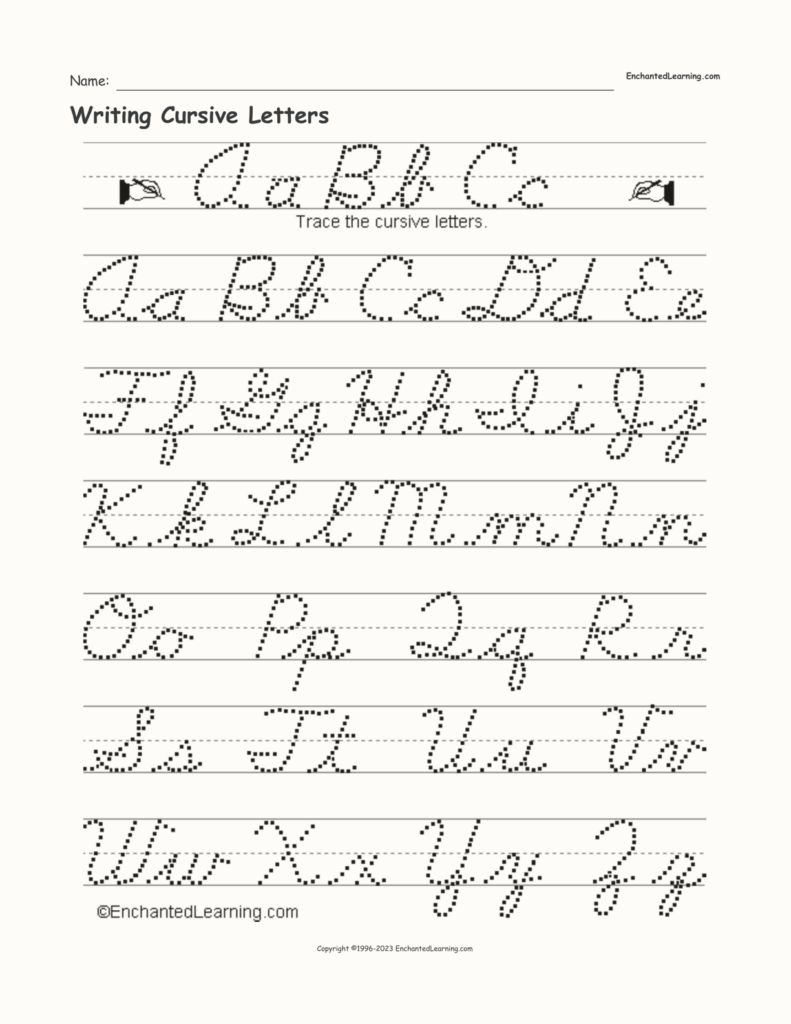 Name:
EnchantedLearning.com
Writing Cursive Letters
Aa Bb Cc
Trace the cursive letters.
Aa Bb Cc Dd Ee
Ff Gg Hh Ii Jj
Kk Ll Mm Nn
Oo Pp Qq Rr
Ss Tt Uu Vv
Ww Xx Yy Zz
©EnchantedLearning.com
Copyright ©1996-2023 EnchantedLearning.com